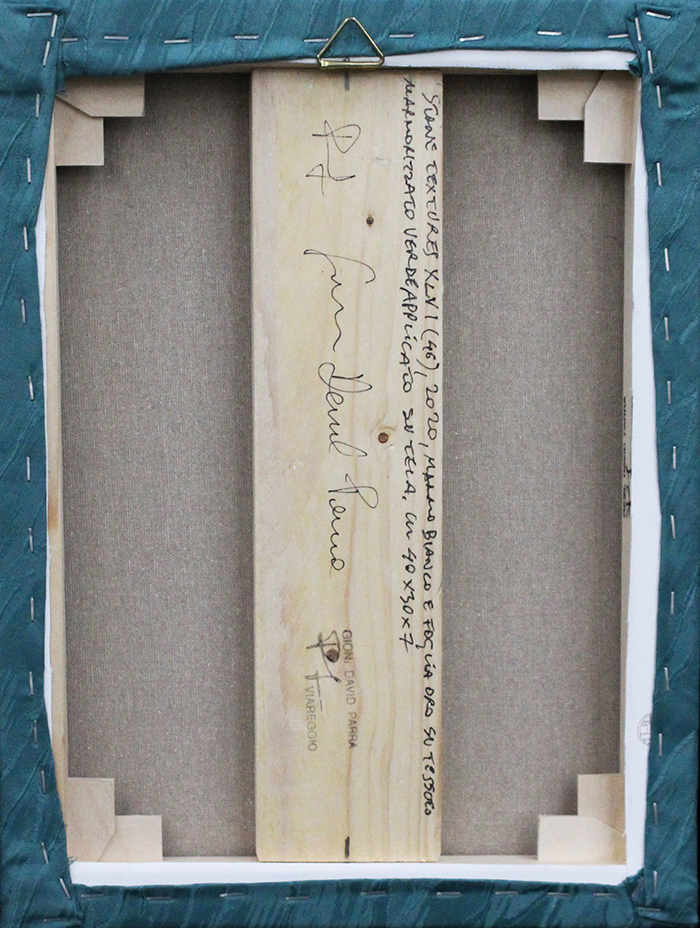 STONE TEXTURES XLVI (46), 2020, MARMO BIANCO E FOGLIA ORO SU TESSUTO
MARMORIZZATO VERDE APPLICATO SU TELA, cm 40x30x7
Gioni David Parra
GIONI DAVID PARRA
VIAREGGIO